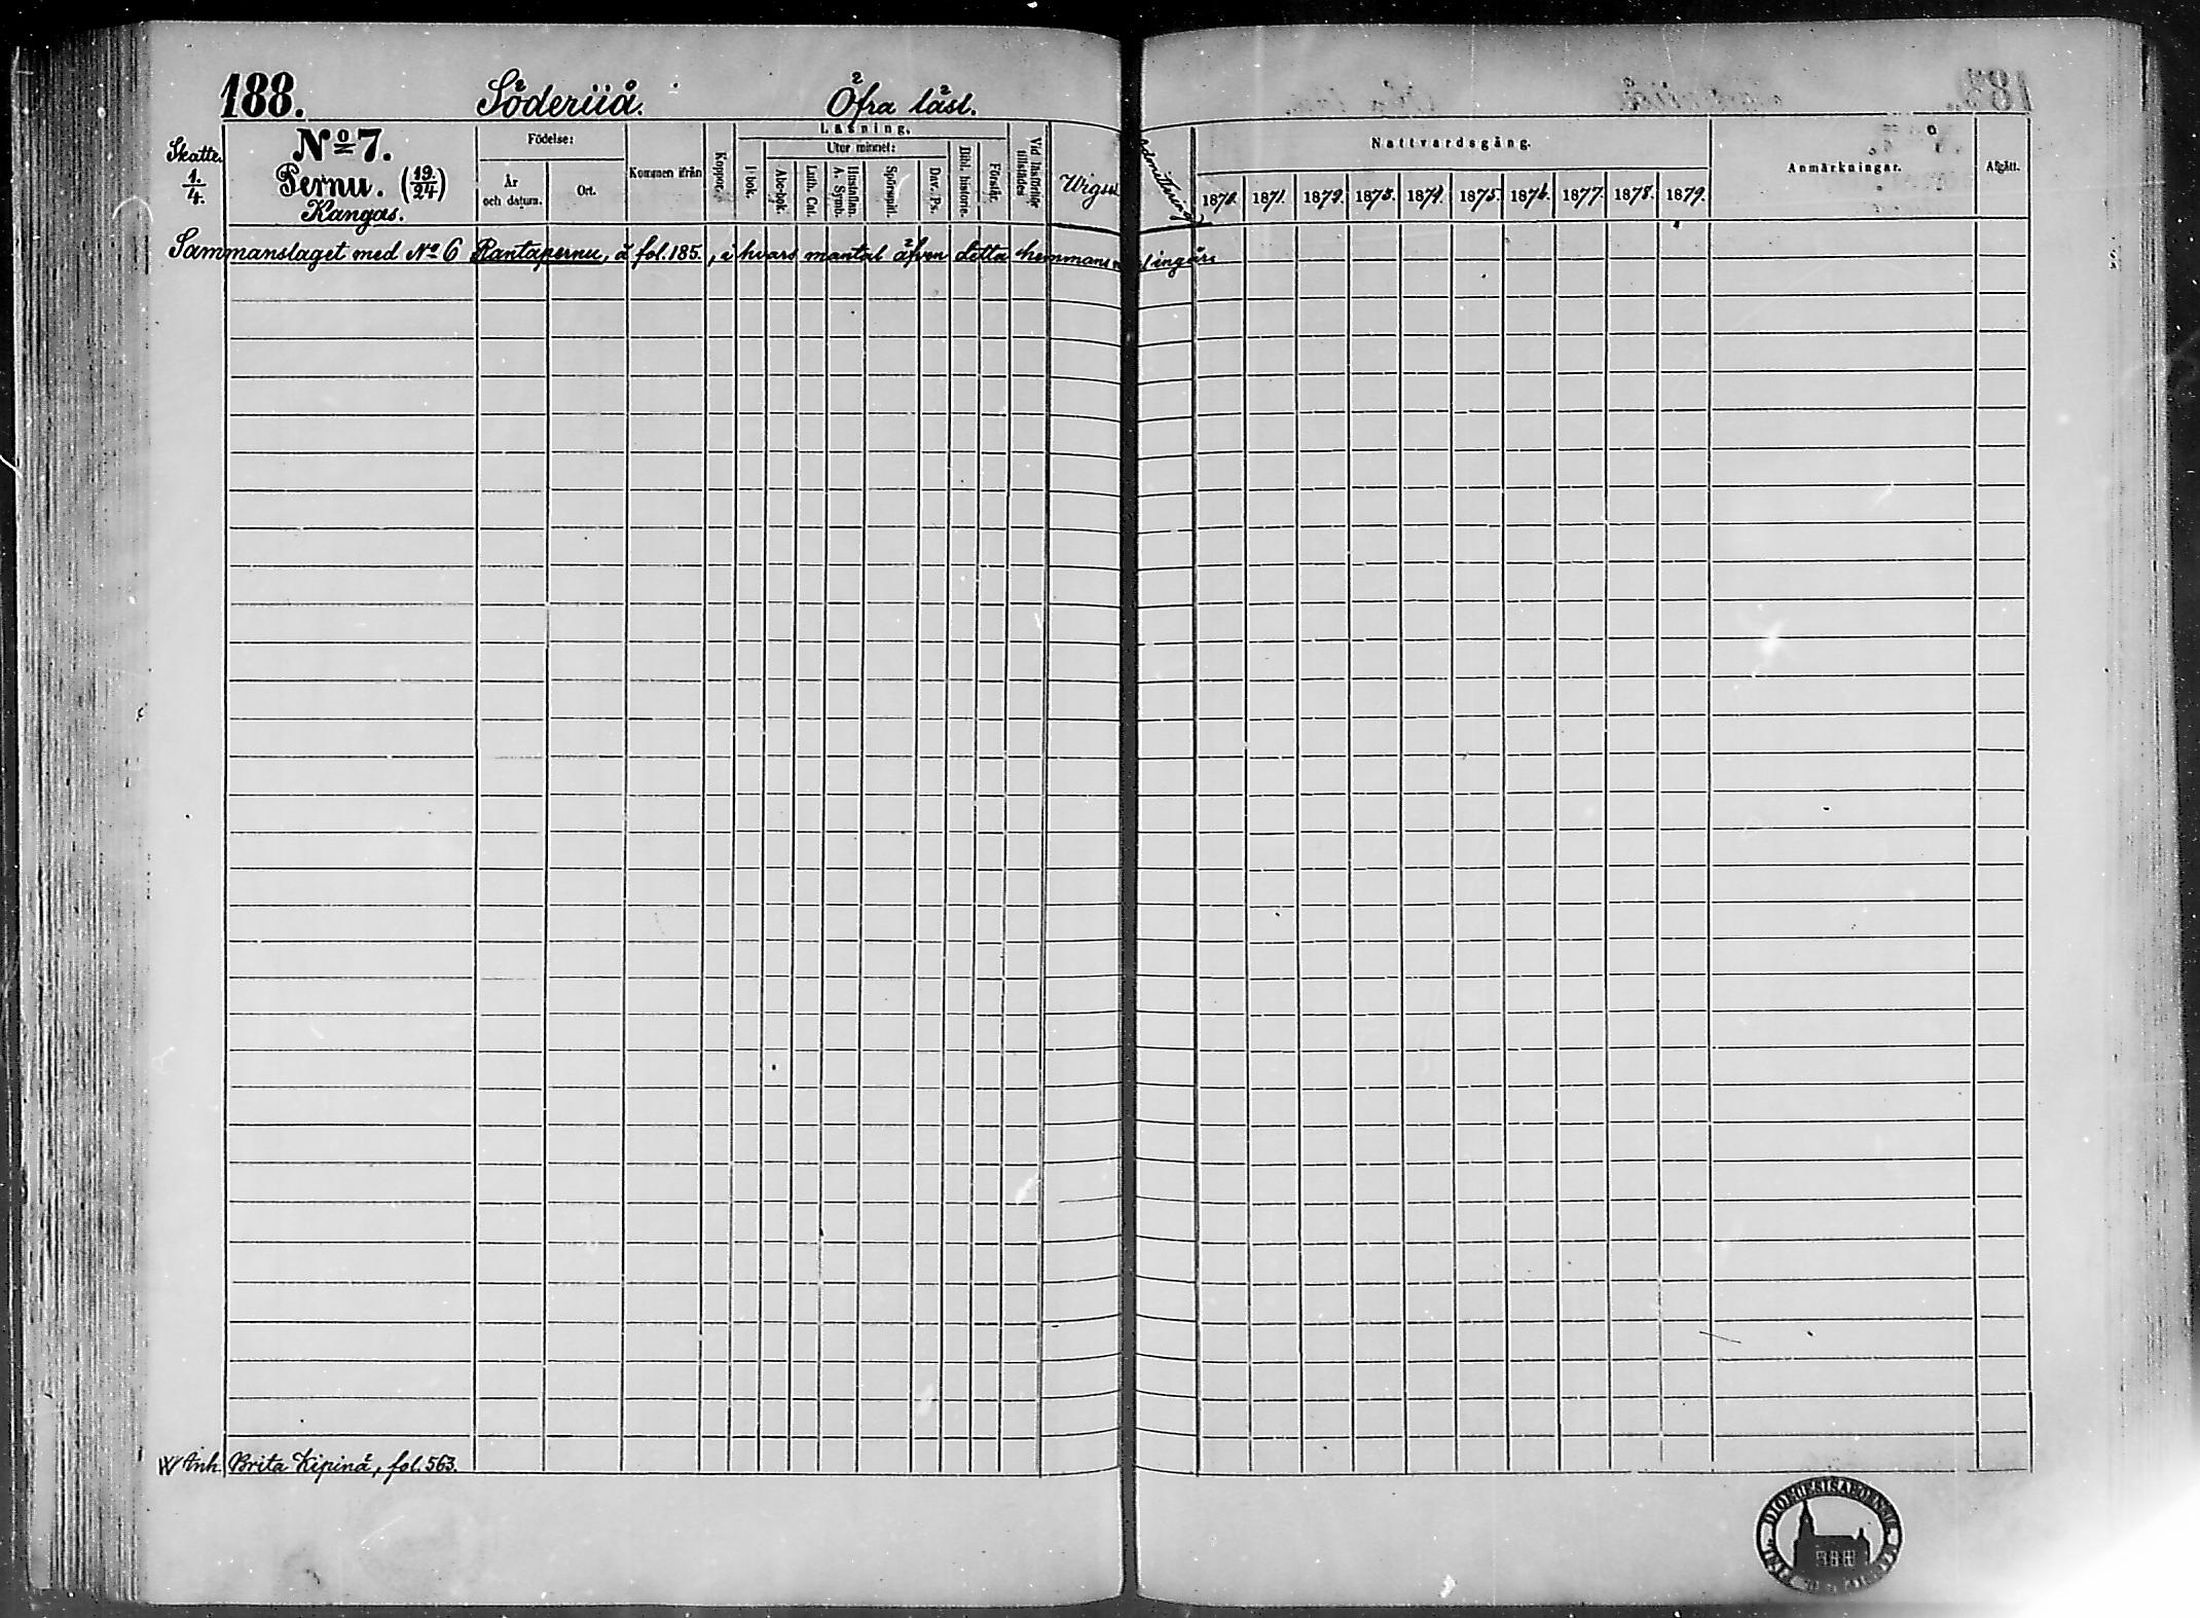 188. Söderiiå. Öfra läsl.
Skatte. 1./4.
No 7.
Pernu. (19./24)
Kangas.
Födelse:
År och datum.
Ort.
Kommen ifrån
Koppor.
Läsning.
I bok.
Utur minnet:
Abc-bok.
Luth. Cat.
Hustaflan. A. Symb.
Spörsmål.
Dav. Ps.
Bibl. historie.
Förstår.
Vid läsförhör tillstädes
Wigsel
Admittering
Nattvardsgång.
1870. 1871. 1872. 1873. 1874. 1875. 1876. 1877. 1878. 1879.
Anmärkningar.
Afgått.
Sammanslaget med No 6 Rantapernu, å fol. 185., i hvars mantal äfven detta hemmans ingår.
Inh. Brita Kipinä, fol. 563.